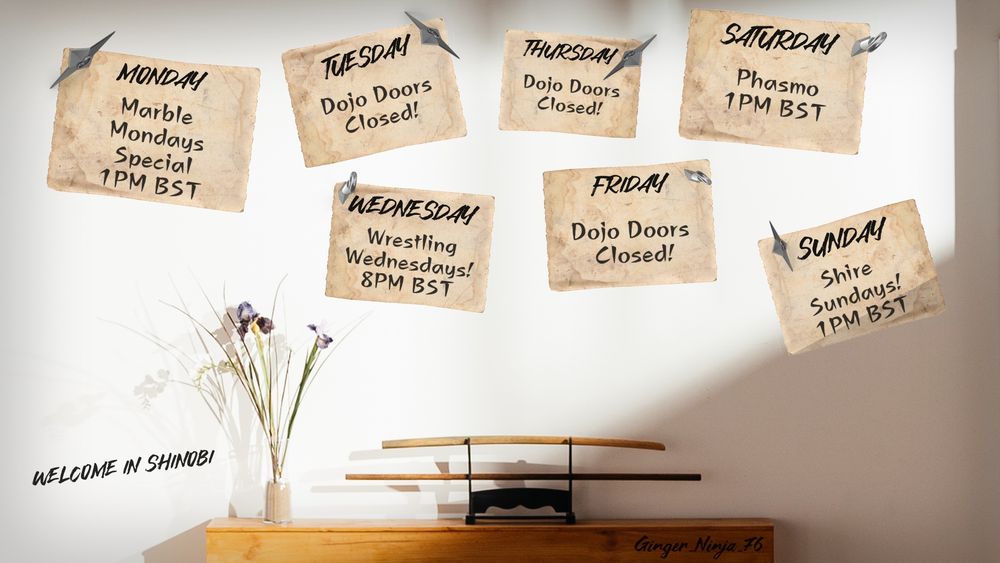 MONDAY
Marble
Mondays
Special
1PM BST
TUESDAY
Dojo Doors
Closed!
WEDNESDAY
Wrestling
Wednesdays!
8PM BST
THURSDAY
Dojo Doors
Closed!
FRIDAY
Dojo Doors
Closed!
SATURDAY
Phasmo
1PM BST
SUNDAY
Shire
Sundays!
1PM BST
WELCOME IN SHINOBI
Ginger_Ninja_76